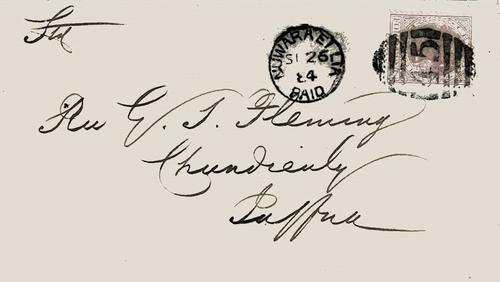 NUWARA ELLIA
SE 26
84
PAID
451
Rev E. S. Fleming
Chundicully
Jaffna